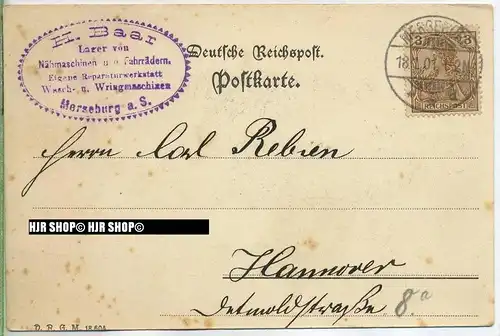 H. Baar
Lager von
Nähmaschinen u. Fahrrädern.
Eigene Reparaturwerkstatt
Wasch- u. Wringmaschinen
Merseburg a. S.
Deutsche Reichspost.
Postkarte.
3 3
REICHSPOST
Herrn Carl Rebien
HJR SHOP© HJR SHOP©
Hannover
Detmoldstraße 8a
D. R. G. M.